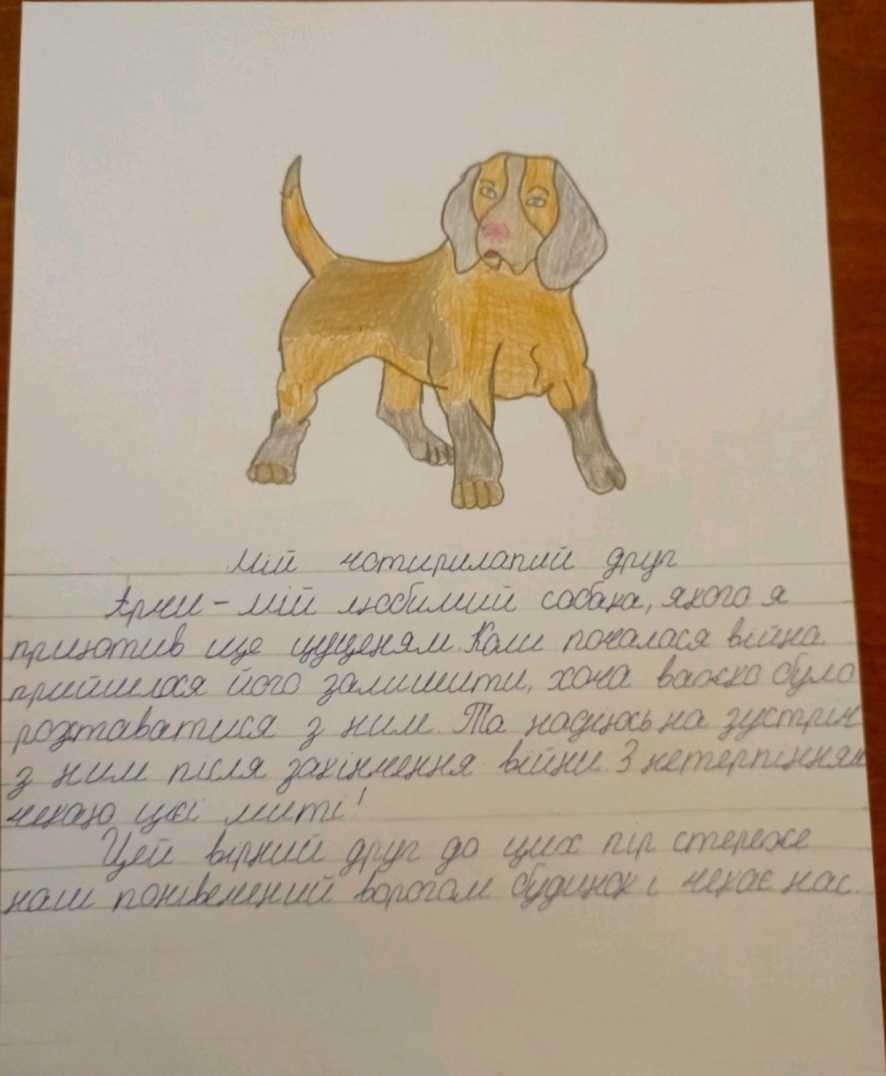 Мій чотирилапий друг
Арчи - мій любимий собака, якого я
приютив ще щуценям. Коли почалася війна
прийшлося його залишити, хоча важко було
розтаватися з ним. Та надіюсь на зустріч
з ним після закінчення війни. З нетерпінням
чекаю цієї миті!
Цей вірний друг до цих пір стереже
наш понівечений ворогом будинок і чекає нас.